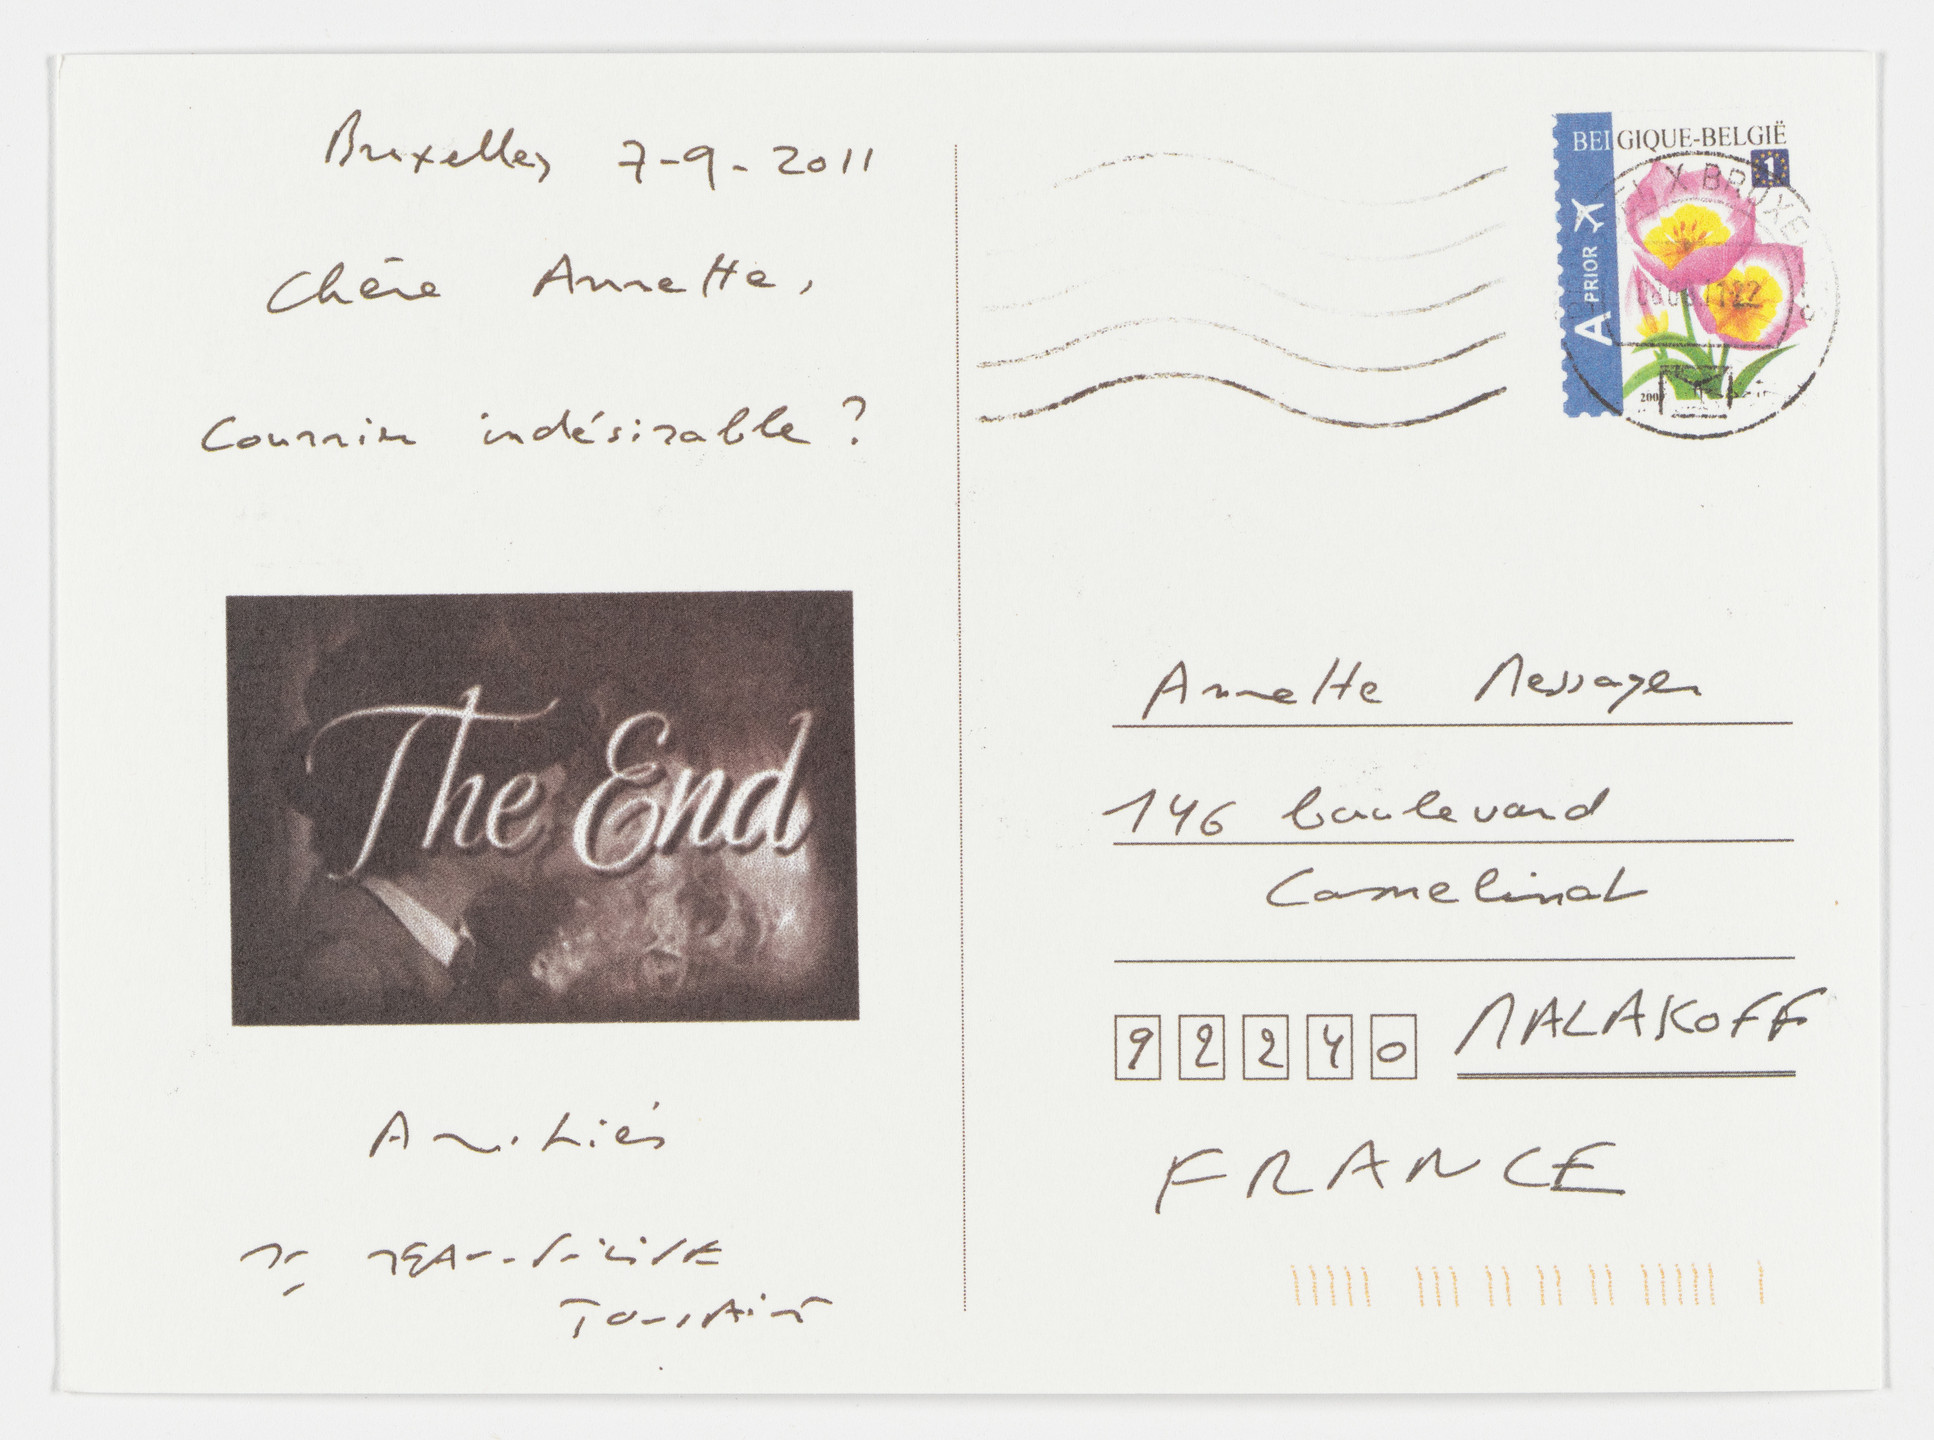 Bruxelles 7-9-2011
Chère Annette,
Courrier indésirable ?
The End
Amitiés
JEAN-PHILIPPE
TOUSSAINT
BELGIQUE-BELGIË
1
A PRIOR
Annette Messager
146 boulevard
Camelinat
92240 MALAKOFF
FRANCE